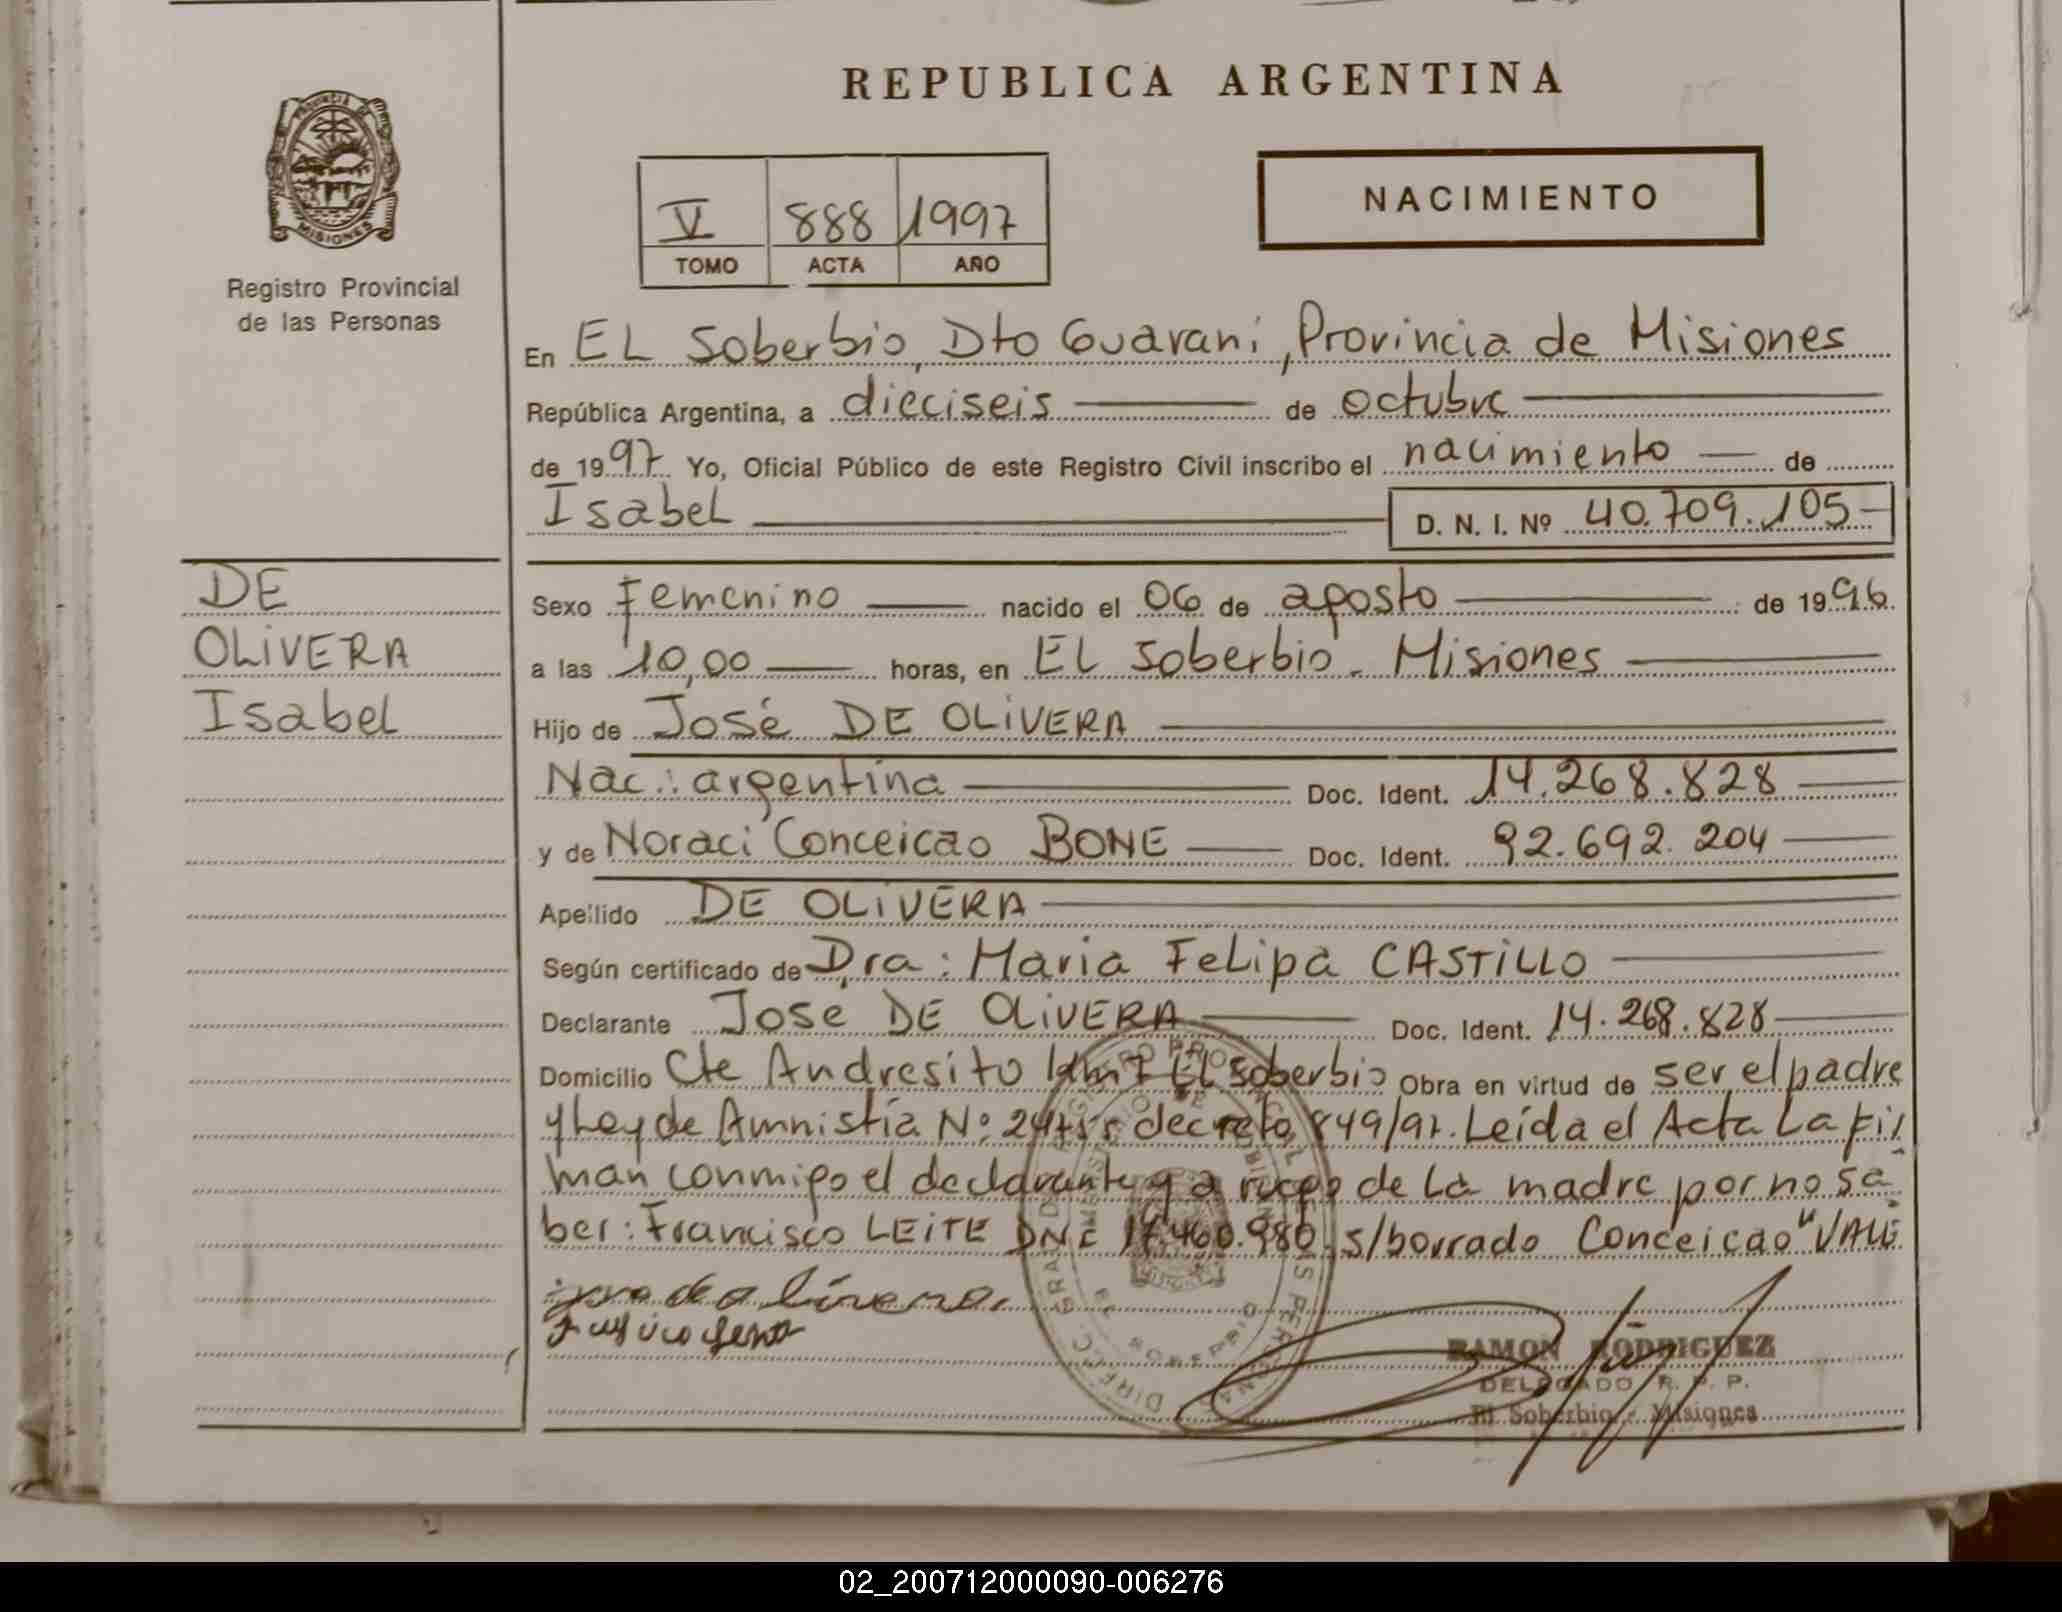 REPUBLICA ARGENTINA
PROVINCIA DE
MISIONES
Registro Provincial
de las Personas
V 888 1997
TOMO ACTA AÑO
NACIMIENTO
En EL Soberbio, Dto Guarani, Provincia de Misiones
República Argentina, a dieciseis de octubre
de 1997 Yo, Oficial Público de este Registro Civil inscribo el nacimiento de
Isabel D. N. I. Nº 40.709.105
DE
OLiVERA
Isabel
Sexo Femenino nacido el 06 de agosto de 1996
a las 10,00 horas, en EL Soberbio - Misiones
Hijo de José DE OLiVERA
Nac.: argentina Doc. Ident. 14.268.828
y de Noraci Conceicao BONE Doc. Ident. 92.692.204
Apellido DE OLiVERA
Según certificado de Dra: Maria Felipa CASTiLLO
Declarante José DE OLiVERA Doc. Ident. 14.268.828
Domicilio Cte Andresito Km 7 EL Soberbio Obra en virtud de ser el padre
y Ley de Amnistía Nº decreto 849/97. Leída el Acta La fir
man conmigo el declarante y a ruego de La madre por no sa
ber: Francisco LEiTE DNI 17.460.980. s/borrado Conceicao "VALE
RAMON RODRIGUEZ
DELEGADO R. P. P.
El Soberbio - Misiones
02_200712000090-006276